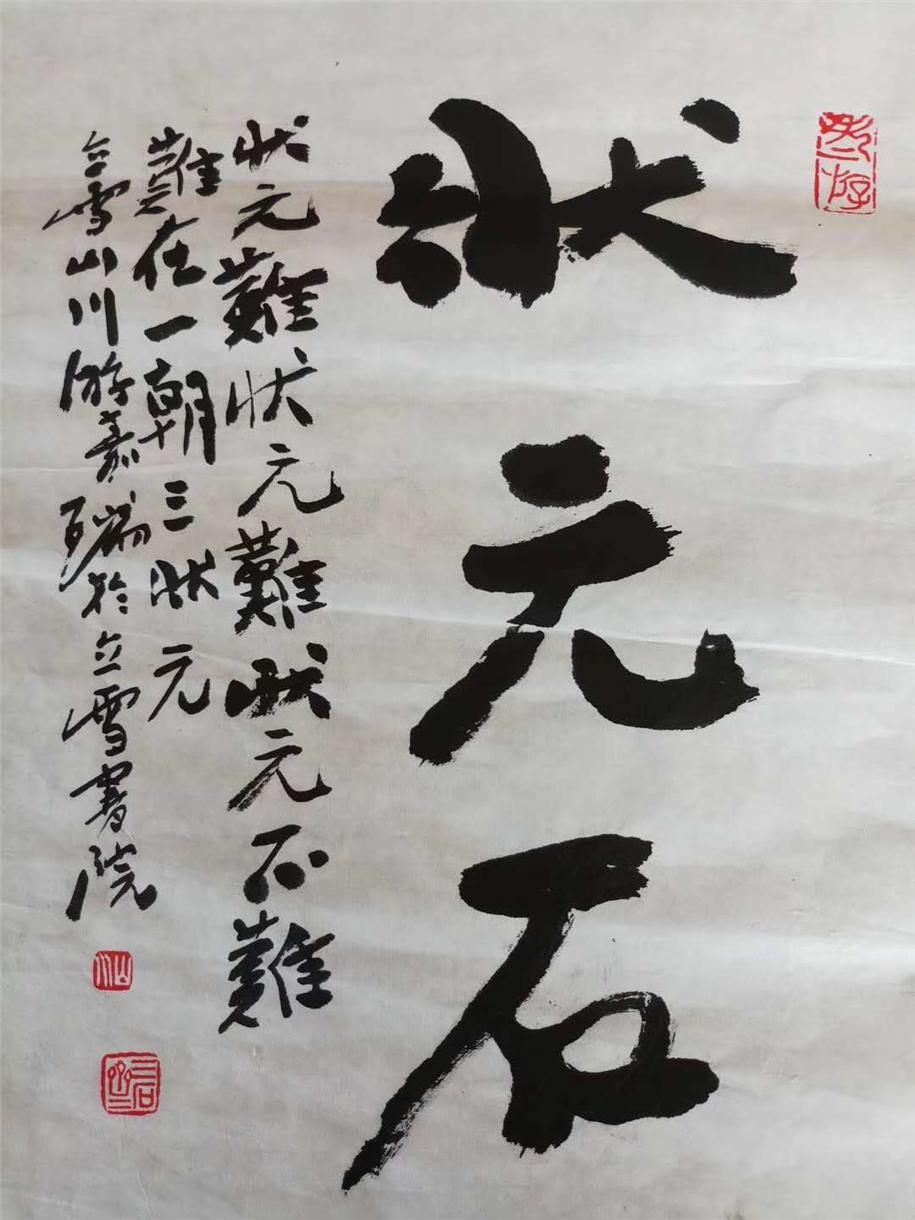 状元石
状元難狀元難狀元不難
難在一朝三狀元
立雪山川游嘉瑞於立雪書院